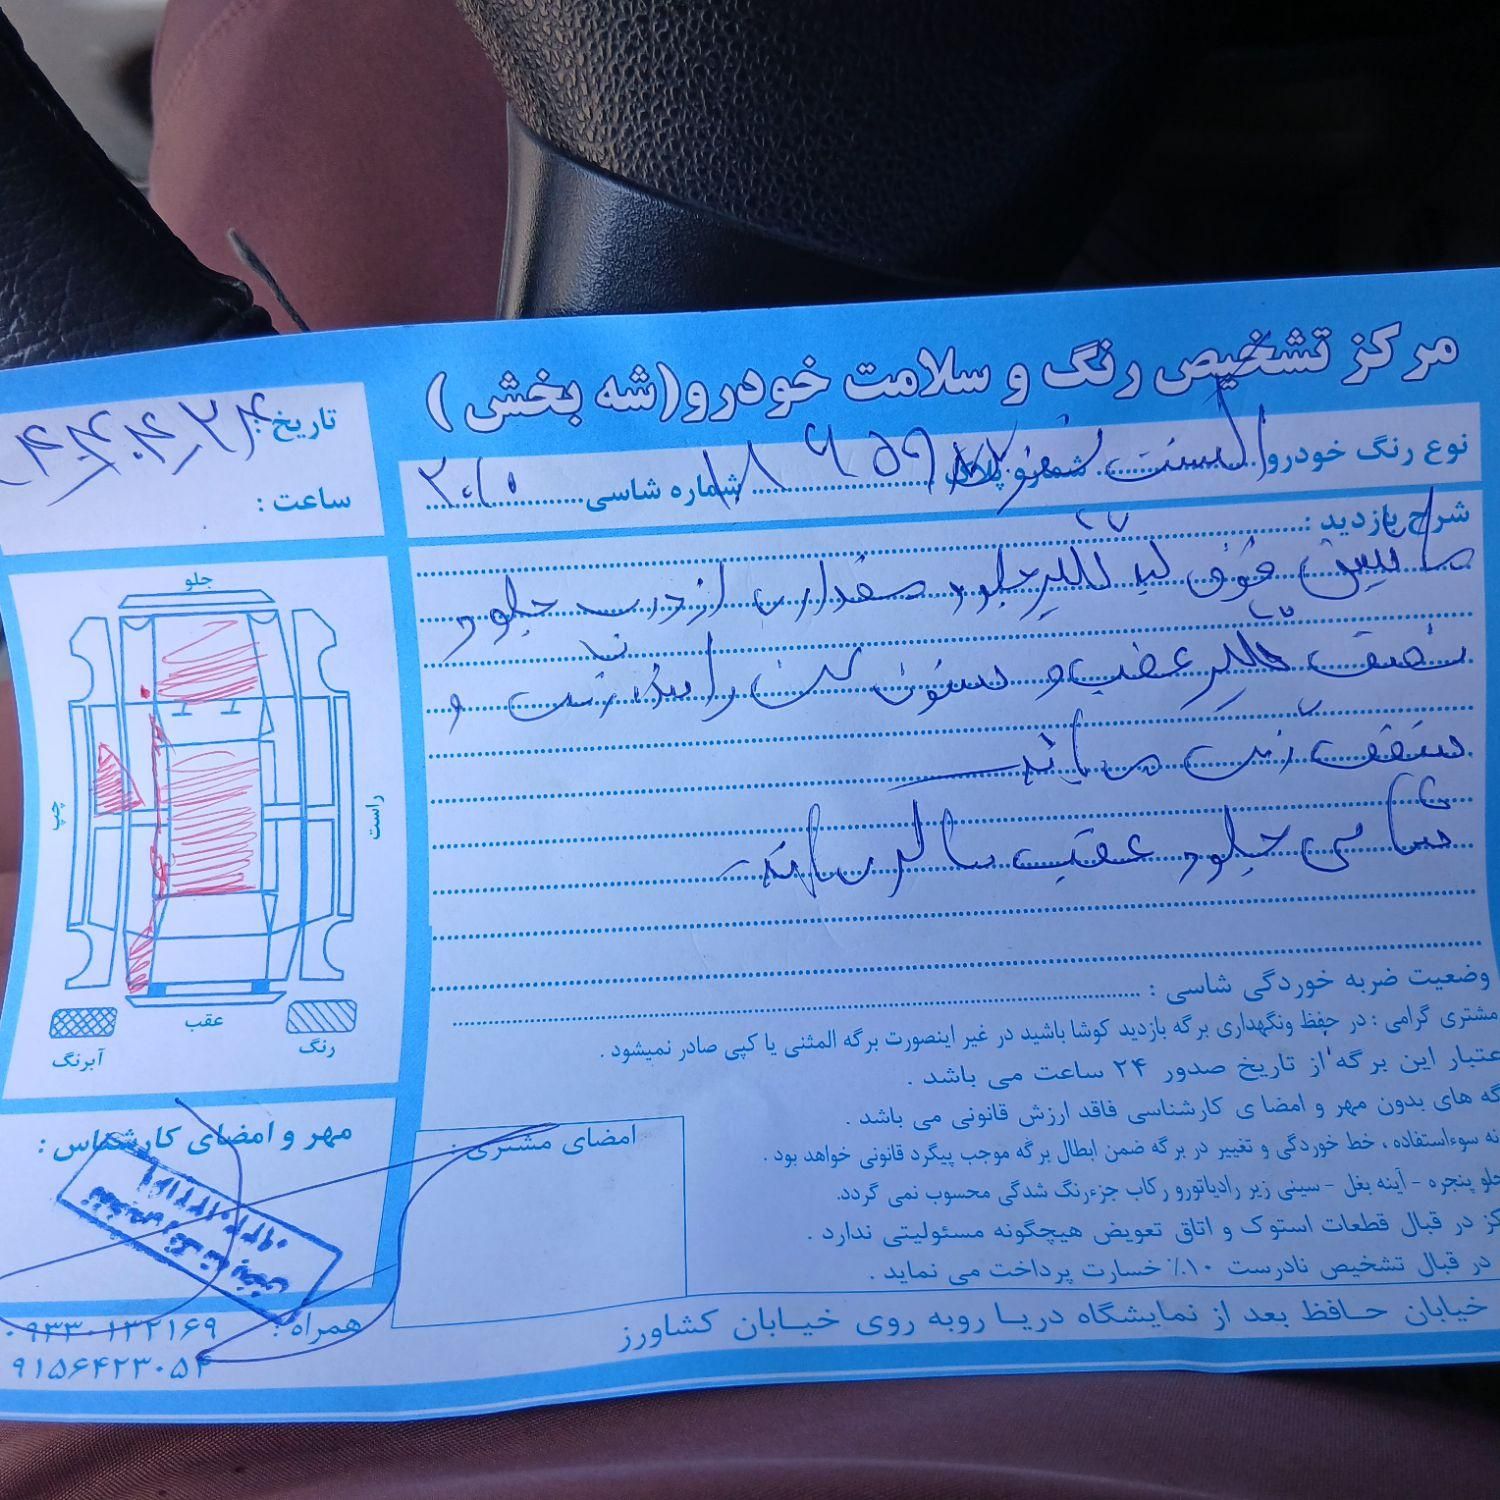 مرکز تشخیص رنگ و سلامت خودرو(شه بخش)
نوع رنگ خودرو شماره پلاک شماره شاسی
تاریخ:
ساعت :
شرح بازدید :
ماشین فوق لبه گلگیر جلو و مقداری از درب جلو و
نصف گلگیر عقب و ستون رنگ و
سقف رنگ می باشد
شاسی جلو و عقب سالم می باشد
جلو
چپ
راست
عقب
آبرنگ
رنگ
وضعیت ضربه خوردگی شاسی :
مشتری گرامی : در حفظ ونگهداری برگه بازدید کوشا باشید در غیر اینصورت برگه المثنی یا کپی صادر نمیشود .
عتبار این برگه از تاریخ صدور ۲۴ ساعت می باشد .
گه های بدون مهر و امضا ی کارشناسی فاقد ارزش قانونی می باشد .
نه سوءاستفاده ، خط خوردگی و تغییر در برگه ضمن ابطال برگه موجب پیگرد قانونی خواهد بود .
جلو پنجره - آینه بغل - سینی زیر رادیاتورو رکاب جزءرنگ شدگی محسوب نمی گردد.
کز در قبال قطعات استوک و اتاق تعویض هیچگونه مسئولیتی ندارد .
در قبال تشخیص نادرست ۱۰٪ خسارت پرداخت می نماید .
امضای مشتری:
مهر و امضای کارشناس :
همراه : ۰۹۳۳۰۱۳۲۱۶۹
۹۱۵۶۴۲۳۰۵۴
خیابان حافظ بعد از نمایشگاه دریا روبه روی خیابان کشاورز